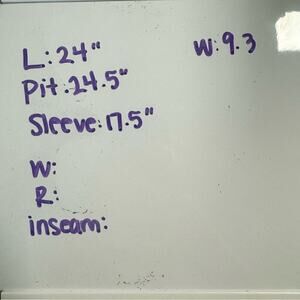 L: 24"
W: 9.3
Pit: 24.5"
Sleeve: 17.5"
W:
R:
inseam: